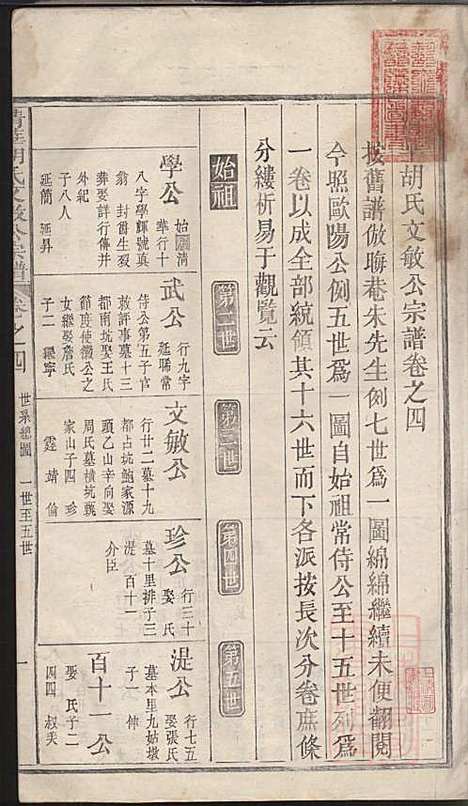 胡氏文敏公宗譜卷之四
按舊譜倣晦菴朱先生例七世爲一圖綿綿繼續未便翻閱
今照歐陽公例五世爲一圖自始祖常侍公至十五世列爲
一卷以成全部統領其十六世而下各派按長次分卷庶條
分縷析易于觀覽云
始祖
第二世
第三世
第四世
第五世
學公
始清
華行十
八字學輝號真
翁 封爵生歿
葬娶詳行傳并
外紀
子八人
延簡 延昇
武公
行九字
延暉常
侍公第五子官
敕評事墓十三
都南坑娶王氏
節度使徽公之
女繼娶詹氏
子二
文敏公
行廿二墓十九
都占坑鮑家源
頭乙山辛向娶
周氏墓橫坑
家山子四 珍
霆 靖 倫
珍公
行三十
娶 氏
墓十里排子三
湜 百十一
介臣
湜公
行七五
娶張氏
墓本里九姑墩
子一 伸
百十一公
娶 氏子二
四四 叔夫
清華胡氏文敏公宗譜
卷之四
世系總圖 一世至五世
一